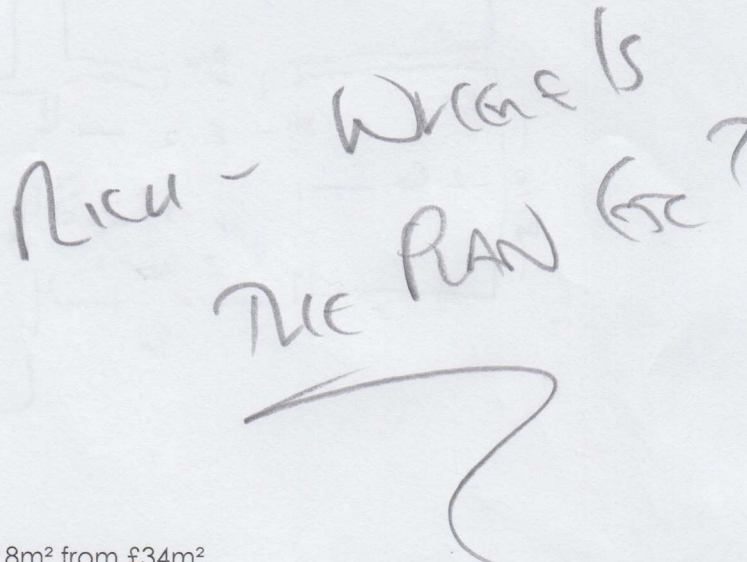 RICH - WHERE IS
THE PLAN ETC?
8m² from £34m²